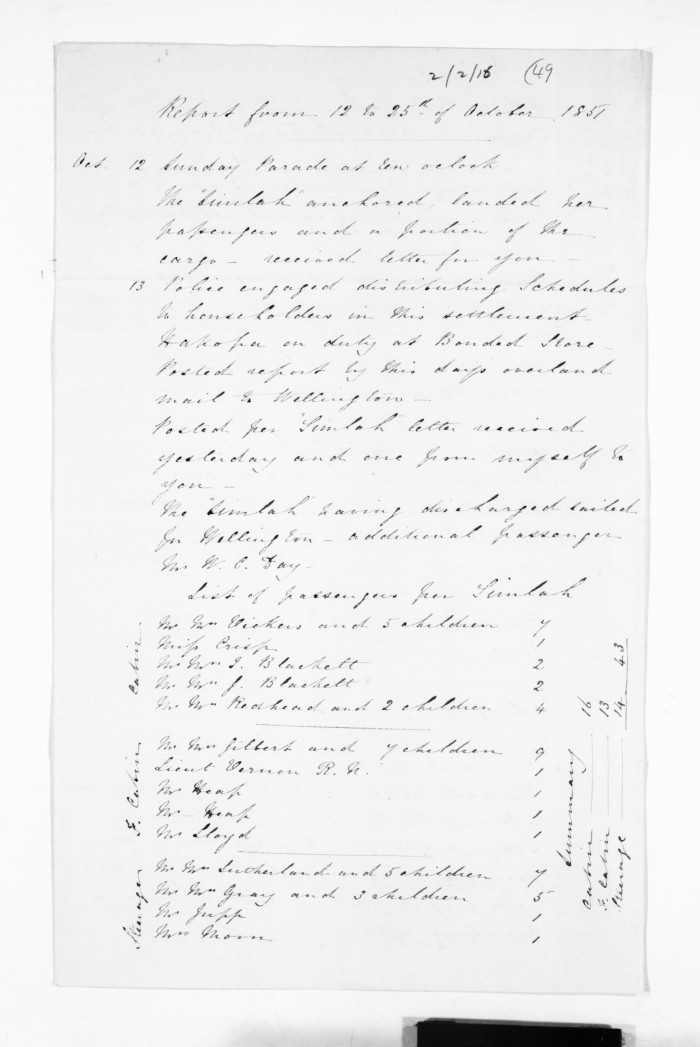 2/2/15 (49
Report from 12 to 25th of October 1851
Oct. 12 Sunday Parade at ten oclock
The "Simlah" anchored, landed her
passengers and a portion of the
cargo - received letter for you -
13 Police engaged distributing Schedules
to householders in this settlement -
Hakopa on duty at Bonded Store -
Posted report by this days overland
mail to Wellington -
Posted per "Simlah" letter received
yesterday and one from myself to
you -
The "Simlah" having discharged sailed
for Wellington - additional passenger
Mr W. C. Day -
List of passengers per Simlah
Cabin
Mr Mrs Vickers and 5 children 7
Miss Crisp 1
Mr Mrs I. Blackett 2
Mr Mrs J. Blackett 2
Mr Mrs Redhead and 2 children 4
F. Cabin
Mr Mrs Gilbert and 7 children 9
Lieut Vernon R.N. 1
Mr Heap 1
Mr - Heap 1
Mr Lloyd 1
Steerage
Mr Mrs Sutherland and 5 children 7
Mr Mrs Gray and 3 children 5
Mr Jupp 1
Mrs Moon 1
Summary
Cabin 16
F. Cabin 13
Steerage 14
43